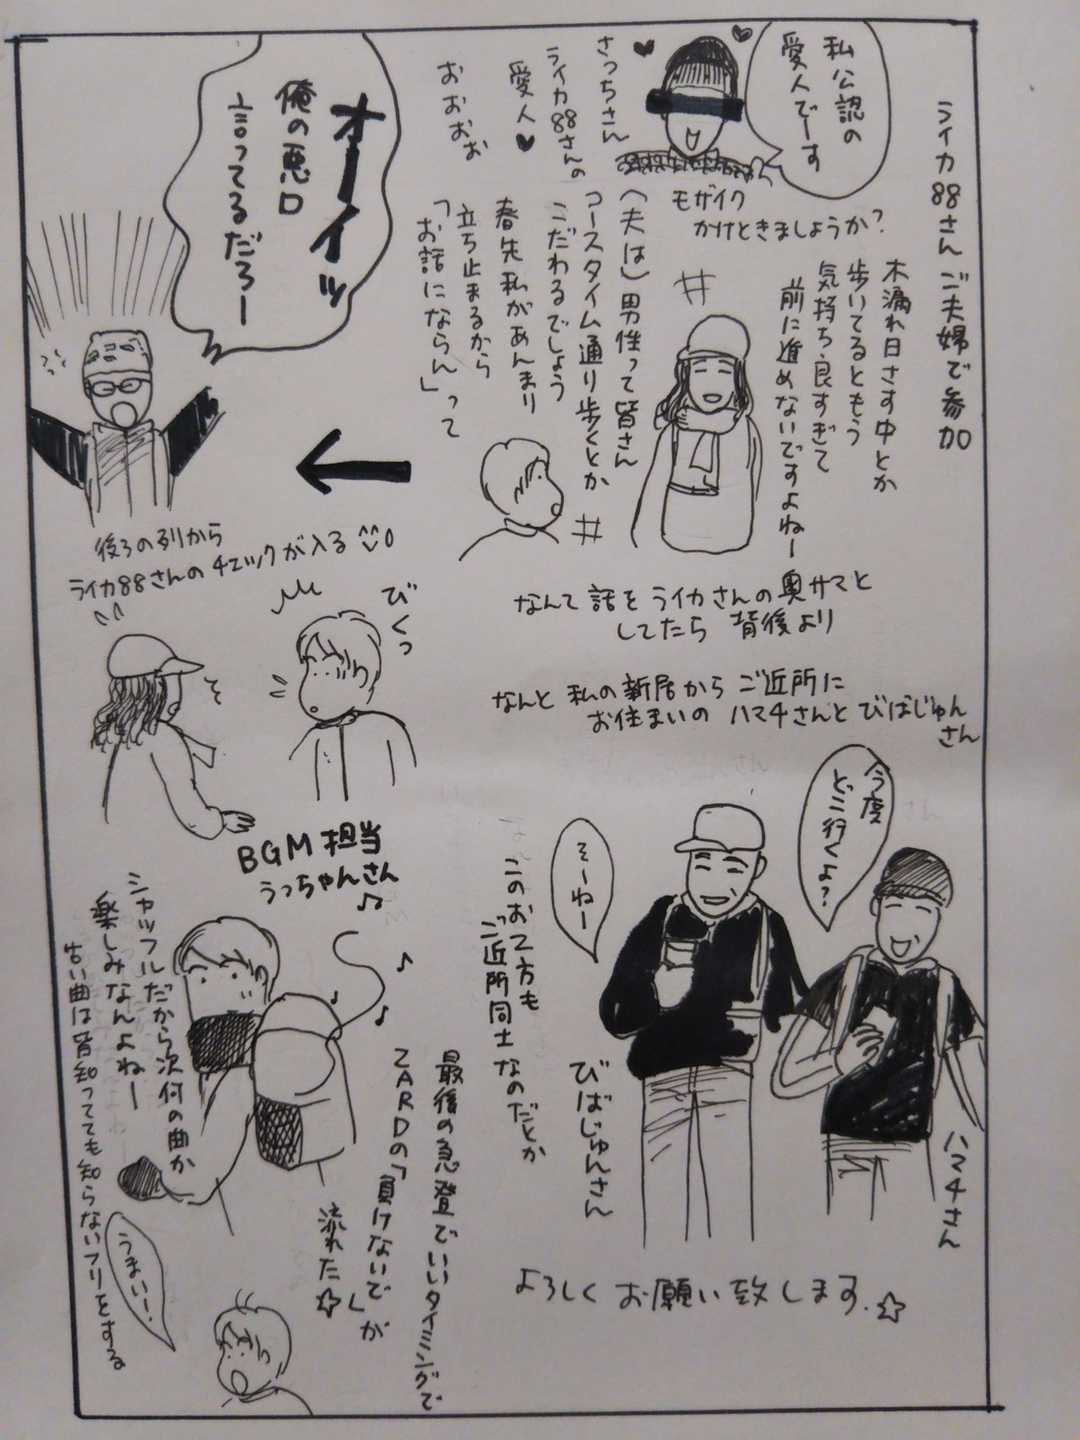 ライカ88さんご夫婦で参加
私公認の
愛人でーす
モザイク
かけときましょうか？
さっちさん
ライカ88さんの
愛人♥
おおおお
木漏れ日さす中とか
歩いてるともう
気持ち良すぎて
前に進めないですよねー
(夫は)男性って皆さん
コースタイム通り歩くとか
こだわるでしょう
春先私があんまり
立ち止まるから
「お話にならん」って
なんて話をライカさんの奥サマと
してたら背後より
オーイッ
俺の悪口
言ってるだろー
後ろの列から
ライカ88さんのチェックが入る
びくっ
なんと私の新居からご近所に
お住まいのハマチさんとびばじゅん
さん
今度
どこ行くよ？
そーねー
このお二方も
ご近所同士なのだとか
びばじゅんさん
ハマチさん
よろしくお願い致します。☆
BGM担当
うっちゃんさん
♫
シャッフルだから次何の曲か
楽しみなんよねー
古い曲は皆知ってても知らないフリをする
最後の急登でいいタイミングで
ZARDの「負けないで」が
流れた☆
うまい…